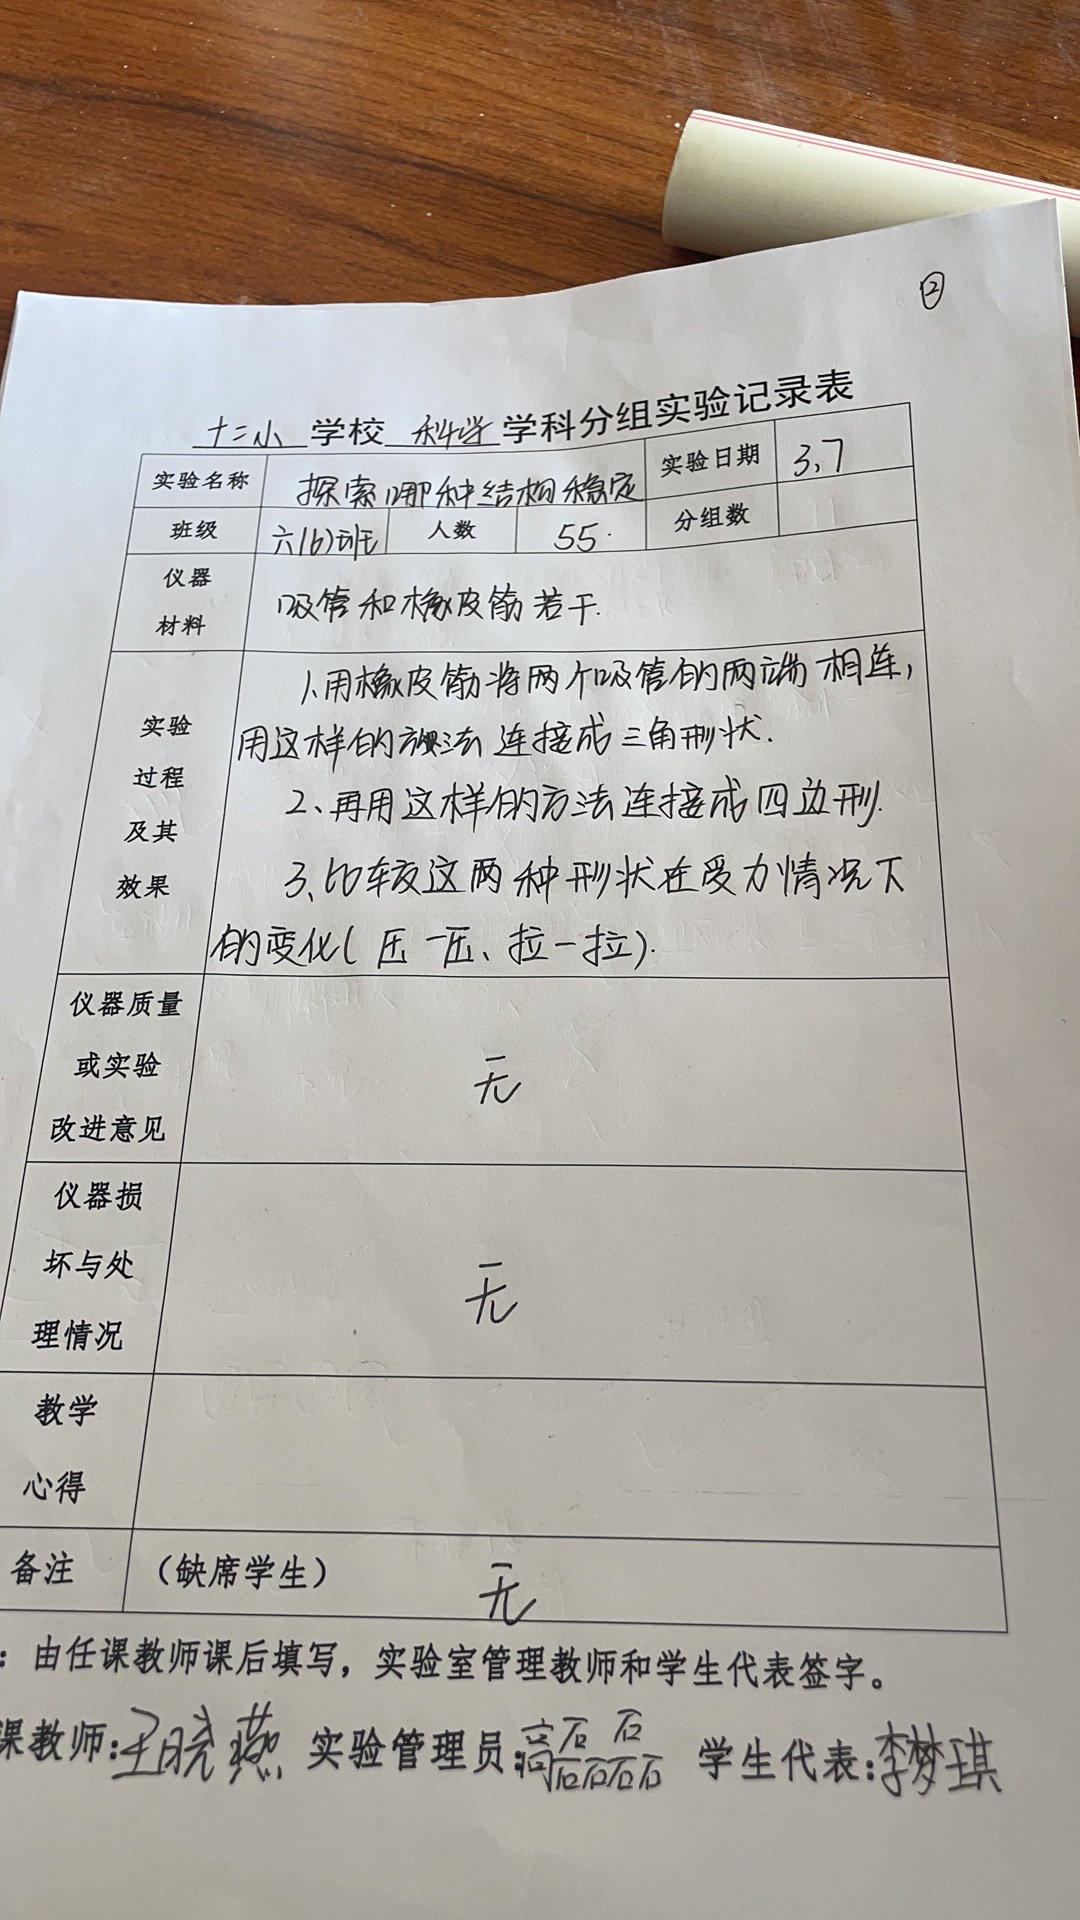 ②
十二小 学校 科学 学科分组实验记录表
实验名称 探索哪种结构稳定 实验日期 3.7
班级 六(6)班 人数 55. 分组数
仪器
材料
吸管和橡皮筋若干.
实验
过程
及其
效果
1.用橡皮筋将两个吸管的两端相连,
用这样的方法连接成三角形状.
2、再用这样的方法连接成四边形.
3、比较这两种形状在受力情况下
的变化(压一压、拉一拉).
仪器质量
或实验
改进意见
无
仪器损
坏与处
理情况
无
教学
心得
备注 (缺席学生) 无
:由任课教师课后填写,实验室管理教师和学生代表签字。
课教师:王晓燕 实验管理员:高磊磊 学生代表:李梦琪